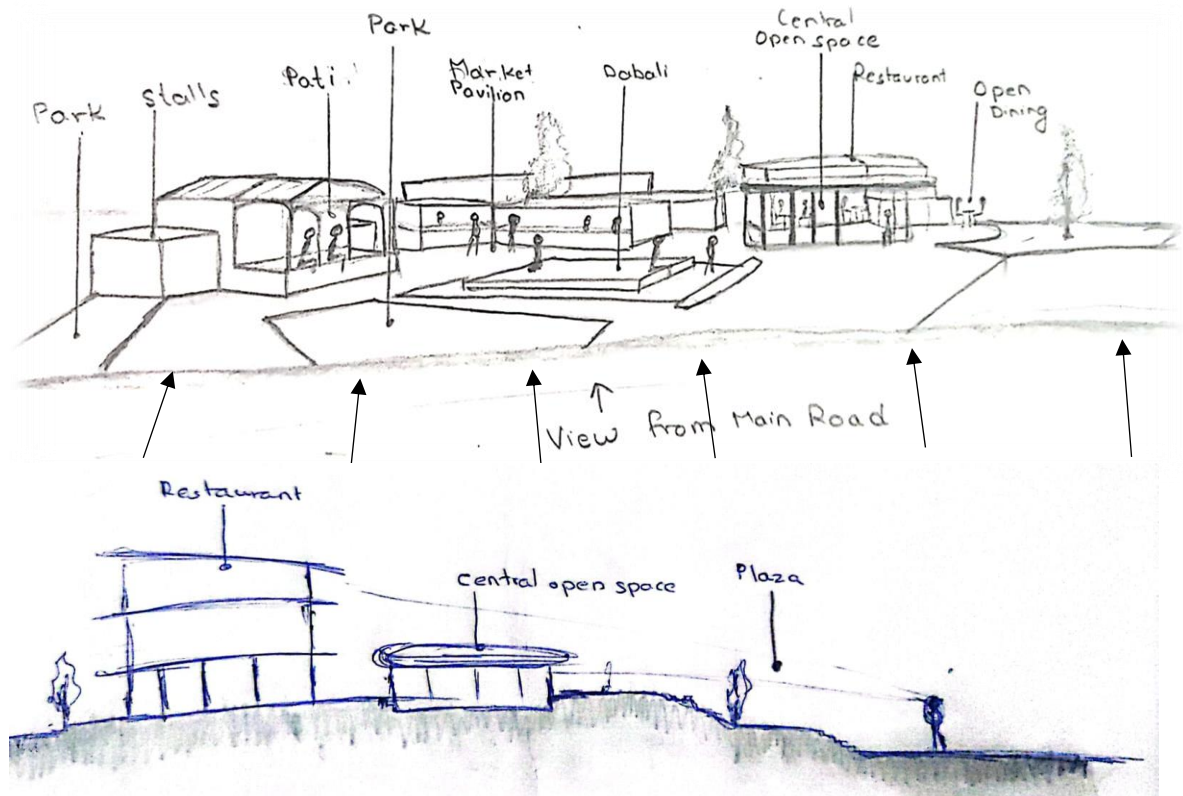 Park
Stalls
Pati
Park
Market
Pavilion
Dabali
Central
Open space
Restaurant
Open
Dining
View from Main Road
Restaurant
Central open space
Plaza